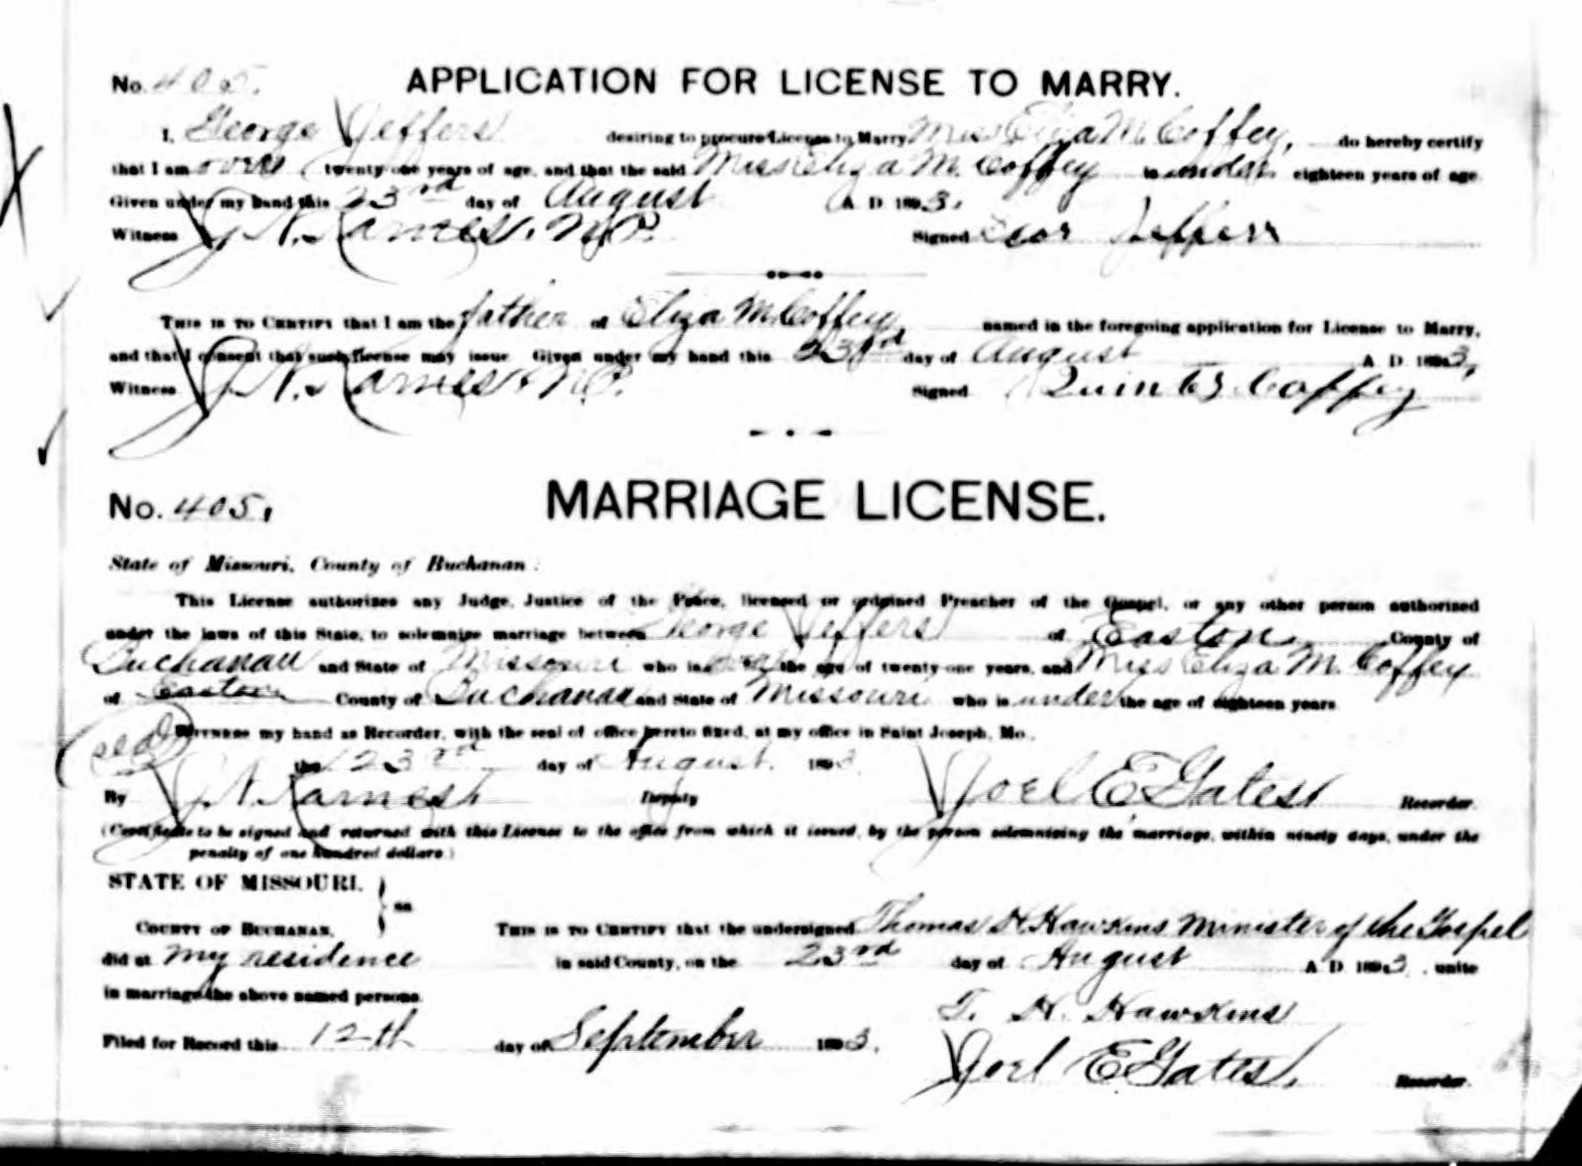 No. 405. APPLICATION FOR LICENSE TO MARRY.
I, George Jeffers desiring to procure License to Marry Miss Eliza M. Coffey, do hereby certify
that I am over twenty-one years of age, and that the said Miss Eliza M. Coffey is under eighteen years of age.
Given under my hand this 23rd day of August A. D. 1893.
Witness J. N. Karnes, N.P. Signed Geor Jeffers
THIS IS TO CERTIFY that I am the father of Eliza M. Coffey, named in the foregoing application for License to Marry,
and that I consent that such license may issue. Given under my hand this 23rd day of August A. D. 1893,
Witness J. N. Karnes, N.P. Signed Coffey
No. 405, MARRIAGE LICENSE.
State of Missouri, County of Buchanan:
This License authorizes any Judge, Justice of the Peace, licensed or ordained Preacher of the Gospel, or any other person authorized
under the laws of this State, to solemnize marriage between George Jeffers of Easton County of
Buchanan and State of Missouri who is over the age of twenty-one years, and Miss Eliza M. Coffey
of Easton County of Buchanan and State of Missouri who is under the age of eighteen years.
Seal WITNESS my hand as Recorder, with the seal of office hereto fixed, at my office in Saint Joseph, Mo.,
the 23rd day of August. 1893
By J. N. Karnes Deputy Joel E. Gates, Recorder.
(Certificate to be signed and returned with this License to the office from which it issued, by the person solemnizing the marriage, within ninety days, under the
penalty of one hundred dollars.)
STATE OF MISSOURI, } ss
COUNTY OF BUCHANAN, THIS IS TO CERTIFY that the undersigned Thomas H. Hawkins Minister of the Gospel
did at my residence in said County, on the 23rd day of August A. D. 1893, unite
in marriage the above named persons. T. H. Hawkins
Filed for Record this 12th day of September 1893. Joel E. Gates, Recorder.